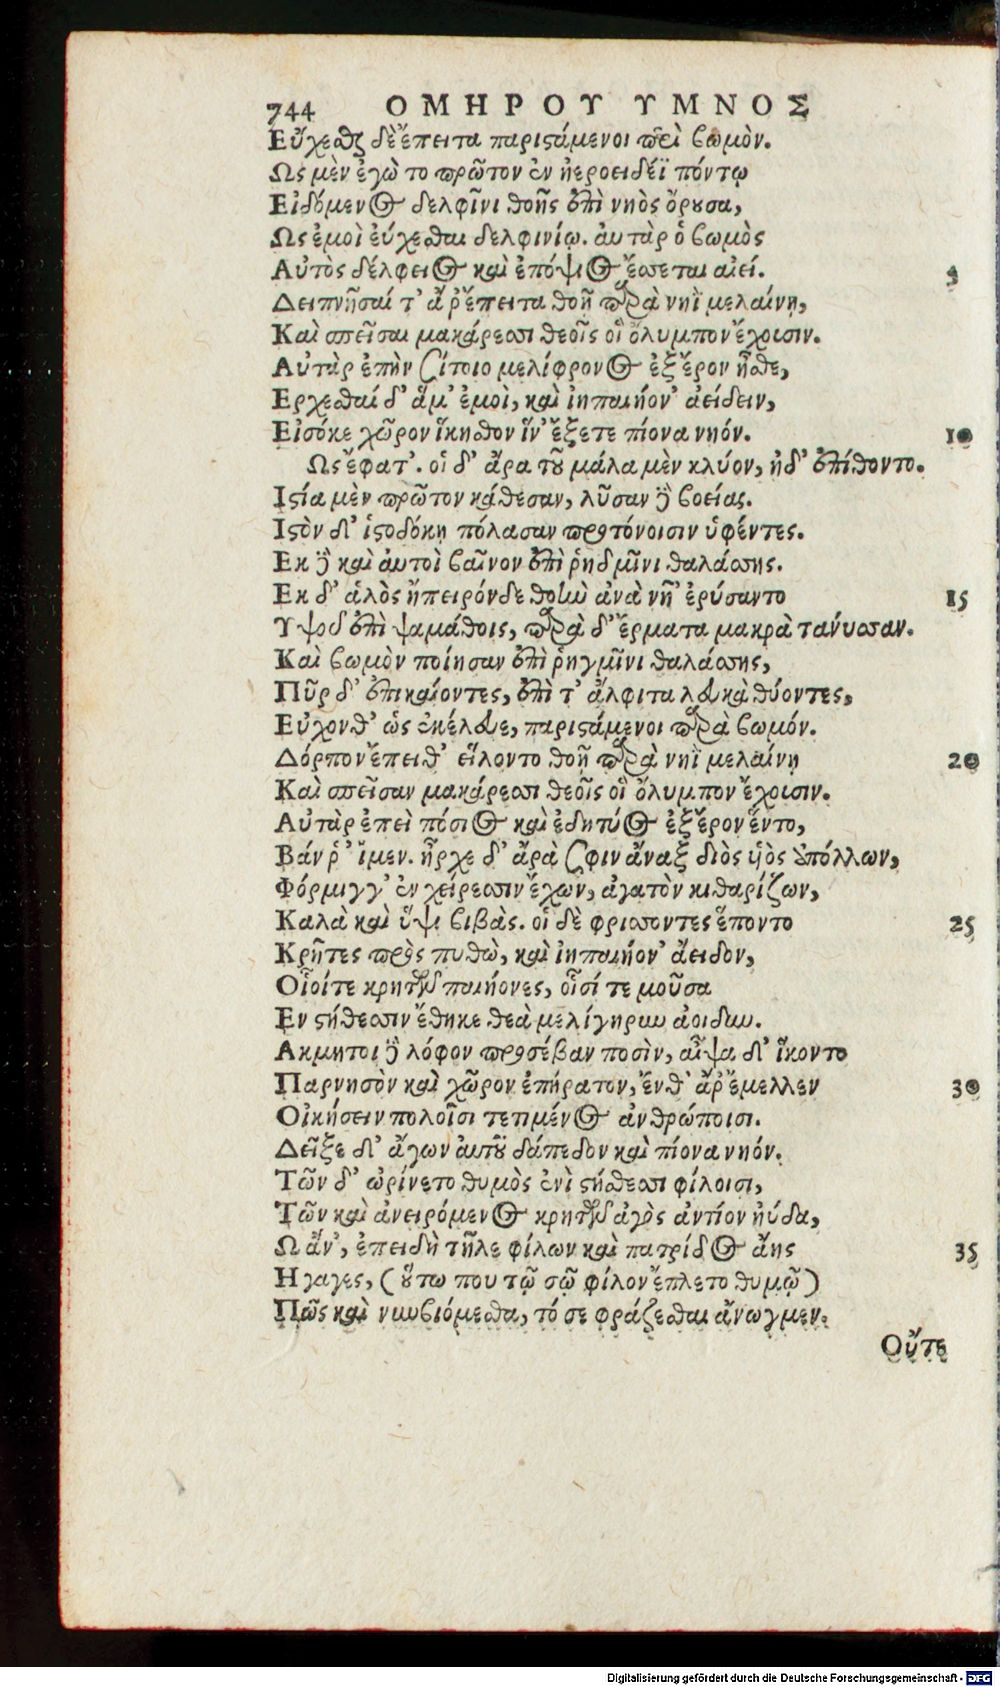 744 ΟΜΗΡΟΥ ΥΜΝΟΣ
Εὔχεσθε δἒπειτα παριστάμενοι περὶ βωμὸν.
Ως μὲν ἐγὼ το πρῶτον ἐν ἠεροειδέϊ πόντῳ
Εἰδόμενος δελφῖνι θοῆς ἐπὶ νηὸς ὄρουσα,
Ως ἐμοὶ ἐύχεσθαι δελφινίῳ. ἀυτὰρ ὁ βωμὸς
Αὐτὸς δέλφειος καὶ ἐπόψιος ἔσσεται αἰεί. 5
Δειπνῆσαί τ' ἂρ ἔπειτα θοῇ παρὰ νηῒ μελαίνῃ,
Καὶ σπεῖσαι μακάρεσσι θεοῖς οἳ ὄλυμπον ἔχοισιν.
Αὐτὰρ ἐπὴν σίτοιο μελίφρονος ἐξ ἔρον ἧσθε,
Ερχεσθαί δ' ἅμ' ἐμοὶ, καὶ ἰηπαιήον' ἀείδειν,
Εἰσόκε χῶρον ἵκησθον ἵν' ἔξετε πίονα νηόν. 10
Ως ἔφατ'. οἱ δ' ἄρα τοῦ μάλα μὲν κλύον, ἠδ' ἐπίθοντο.
Ιστία μὲν πρῶτον κάθεσαν, λῦσαν δὲ βοείας.
Ιστὸν δ' ἱστοδόκῃ πόλασαν προτόνοισιν ὑφέντες.
Εκ δὲ καὶ ἀυτοὶ βαῖνον ἐπὶ ῥηδμῖνι θαλάσσης.
Εκ δ' ἁλὸς ἤπειρόνδε θοὴν ἀνὰ νῆ' ἐρύσαντο 15
Υψοδ ἐπὶ ψαμάθοις, παρὰ δ' ἕρματα μακρὰ τανύσσαν.
Καὶ βωμὸν ποίησαν ἐπὶ ῥηγμῖνι θαλάσσης,
Πῦρ δ' ἐπικαίοντες, ἐπὶ τ' ἄλφιτα λευκὰ θύοντες,
Εὔχονθ' ὡς ἐκέλευε, παριστάμενοι παρὰ βωμόν.
Δόρπον ἔπειθ' εἵλοντο θοῇ παρὰ νηῒ μελαίνῃ 20
Καὶ σπεῖσαν μακάρεσσι θεοῖς οἳ ὄλυμπον ἔχοισιν.
Αὐτὰρ ἐπεὶ πόσιος καὶ ἐδητύος ἐξ ἔρον ἕντο,
Βάν ῥ' ἴμεν. ἦρχε δ' ἄρὰ σφιν ἄναξ διὸς υἱὸς ἀπόλλων,
Φόρμιγγ' ἐν χείρεσσιν ἔχων, ἀγατὸν κιθαρίζων,
Καλὰ καὶ ὕψι βιβὰς. οἱ δὲ φρισσοντες ἕποντο 25
Κρῆτες πρὸς πυθὼ, καὶ ἰηπαιήον' ἄειδον,
Οἷοίτε κρητῶν παιήονες, οἷσί τε μοῦσα
Εν στήθεσσιν ἔθηκε θεὰ μελίγηρυν ἀοιδήν.
Ακμητοι δὲ λόφον προσέβαν ποσὶν, αἶψα δ' ἵκοντο
Παρνησὸν καὶ χῶρον ἐπήρατον, ἔνθ' ἂρ ἔμελλεν 30
Οἰκήσειν πολοῖσι τετιμένος ἀνθρώποισι.
Δεῖξε δ' ἄγων ἀυτοῦ δάπεδον καὶ πίονα νηόν.
Τῶν δ' ὠρίνετο θυμὸς ἐνὶ στήθεσσι φίλοισι,
Τῶν καὶ ἀνειρόμενος κρητῶν ἀγὸς ἀντίον ηὔδα,
Ω ἄν', ἐπειδὴ τῆλε φίλων καὶ πατρίδος ἄης 35
Ηγαγες, (οὕτω που τῷ σῷ φίλον ἔπλετο θυμῷ)
Πῶς καὶ νῦν βιόμεσθα, τό σε φράζεσθαι ἄνωγμεν.
Οὔτε
Digitalisierung gefördert durch die Deutsche Forschungsgemeinschaft - DFG